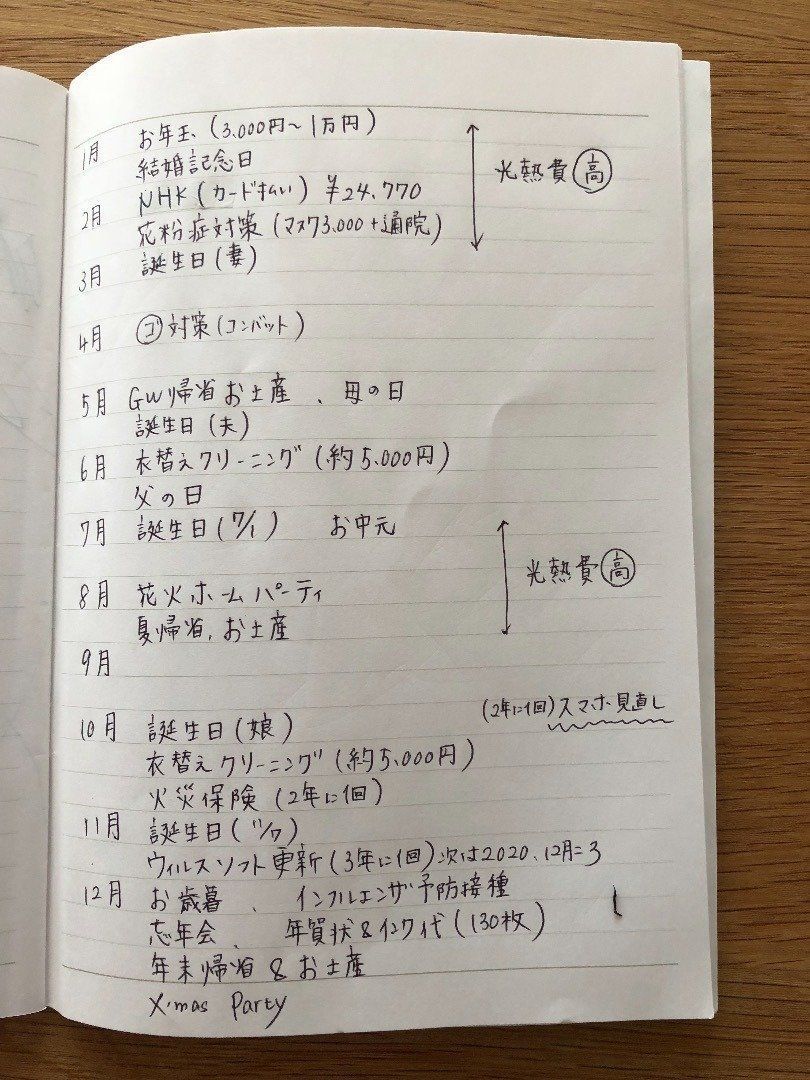 1月 お年玉 (3,000円〜1万円)
結婚記念日
光熱費 高
2月 NHK (カード払い) ¥24,770
花粉症対策 (マスク3,000+通院)
3月 誕生日 (妻)
4月 ゴ対策 (コンバット)
5月 GW帰省お土産、母の日
誕生日 (夫)
6月 衣替えクリーニング (約5,000円)
父の日
7月 誕生日 (7/1) お中元
光熱費 高
8月 花火ホームパーティ
夏帰省、お土産
9月
(2年に1回) スマホ見直し
10月 誕生日 (娘)
衣替えクリーニング (約5,000円)
火災保険 (2年に1回)
11月 誕生日 (11/7)
ウィルスソフト更新 (3年に1回) 次は2020、12月=3
12月 お歳暮、インフルエンザ予防接種
忘年会、年賀状&インク代 (130枚)
年末帰省&お土産
X'mas Party